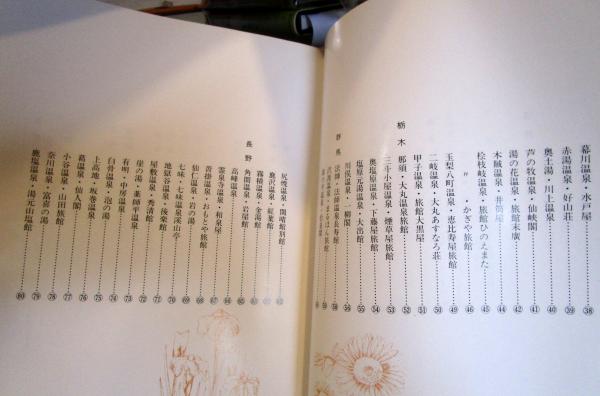 幕川温泉・水戸屋 38
赤湯温泉・好山荘 39
奥土湯・川上温泉 40
芦の牧温泉・仙峡閣 41
湯の花温泉・旅館末廣 42
木賊温泉・井筒屋 44
桧枝岐温泉・旅館ひのえまた 45
〃・かぎや旅館 46
玉梨八町温泉・恵比寿屋旅館 49
二岐温泉・大丸あすなろ荘 50
甲子温泉・旅館大黒屋 51
栃木
那須・大丸温泉旅館 52
三斗小屋温泉・煙草屋旅館 53
奥塩原温泉・下藤屋旅館 54
塩原元湯温泉・大出館 55
川俣温泉・柳閣
群馬
法師・法師温泉長寿館
沢渡温泉・まるほん旅館
尻焼温泉・関晴館別館
鹿沢温泉・紅葉館
霧積温泉・金湯館
長野
角間温泉・岩屋館
高峰温泉
霊泉寺温泉・和泉屋
沓掛温泉・おもとや旅館
仙仁温泉・岩の湯
七味・七味温泉渓山亭
地獄谷温泉・後楽館
屋敷温泉・秀清館
崖の湯・薬師平温泉
有明・中房温泉
白骨温泉・泡の湯
上高地・坂巻温泉
葛温泉・仙人閣
小谷温泉・山田旅館 77
奈川温泉・富喜の湯 78
鹿塩温泉・湯元山塩館 80